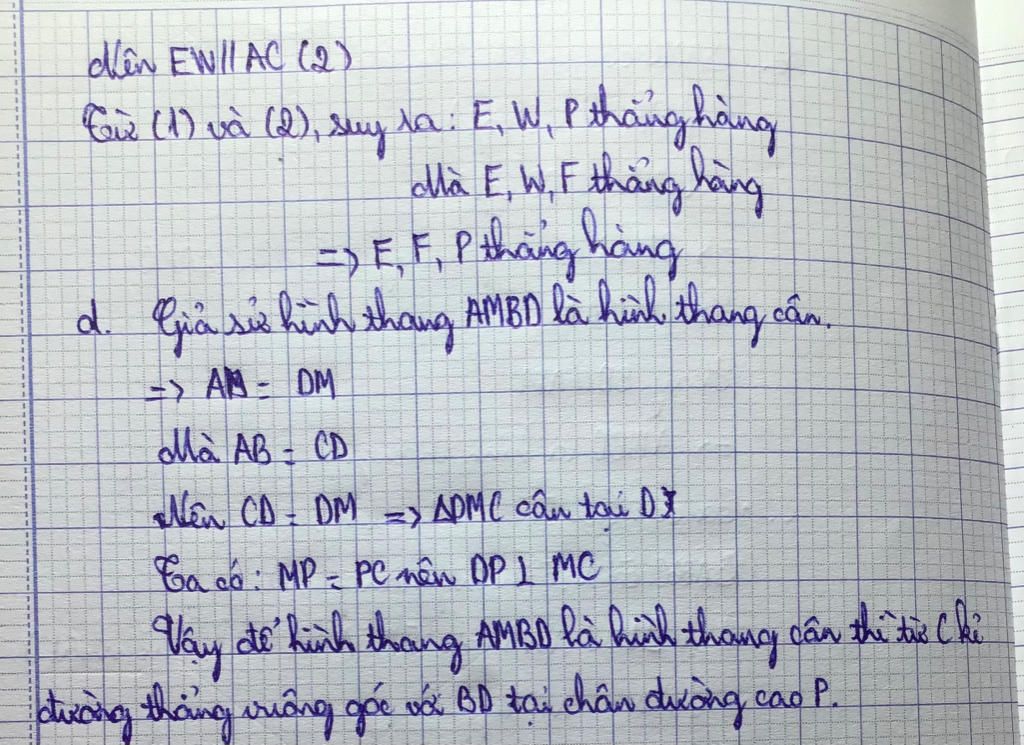 Nên EW // AC (2)
Từ (1) và (2), suy ra: E, W, P thẳng hàng
Mà E, W, F thẳng hàng
=> E, F, P thẳng hàng
d. Giả sử hình thang AMBD là hình thang cân.
=> AB = DM
Mà AB = CD
Nên CD = DM => ΔDMC cân tại D
Ta có: MP = PC nên DP ⊥ MC
Vậy để hình thang AMBD là hình thang cân thì từ C kẻ
đường thẳng vuông góc với BD tại chân đường cao P.